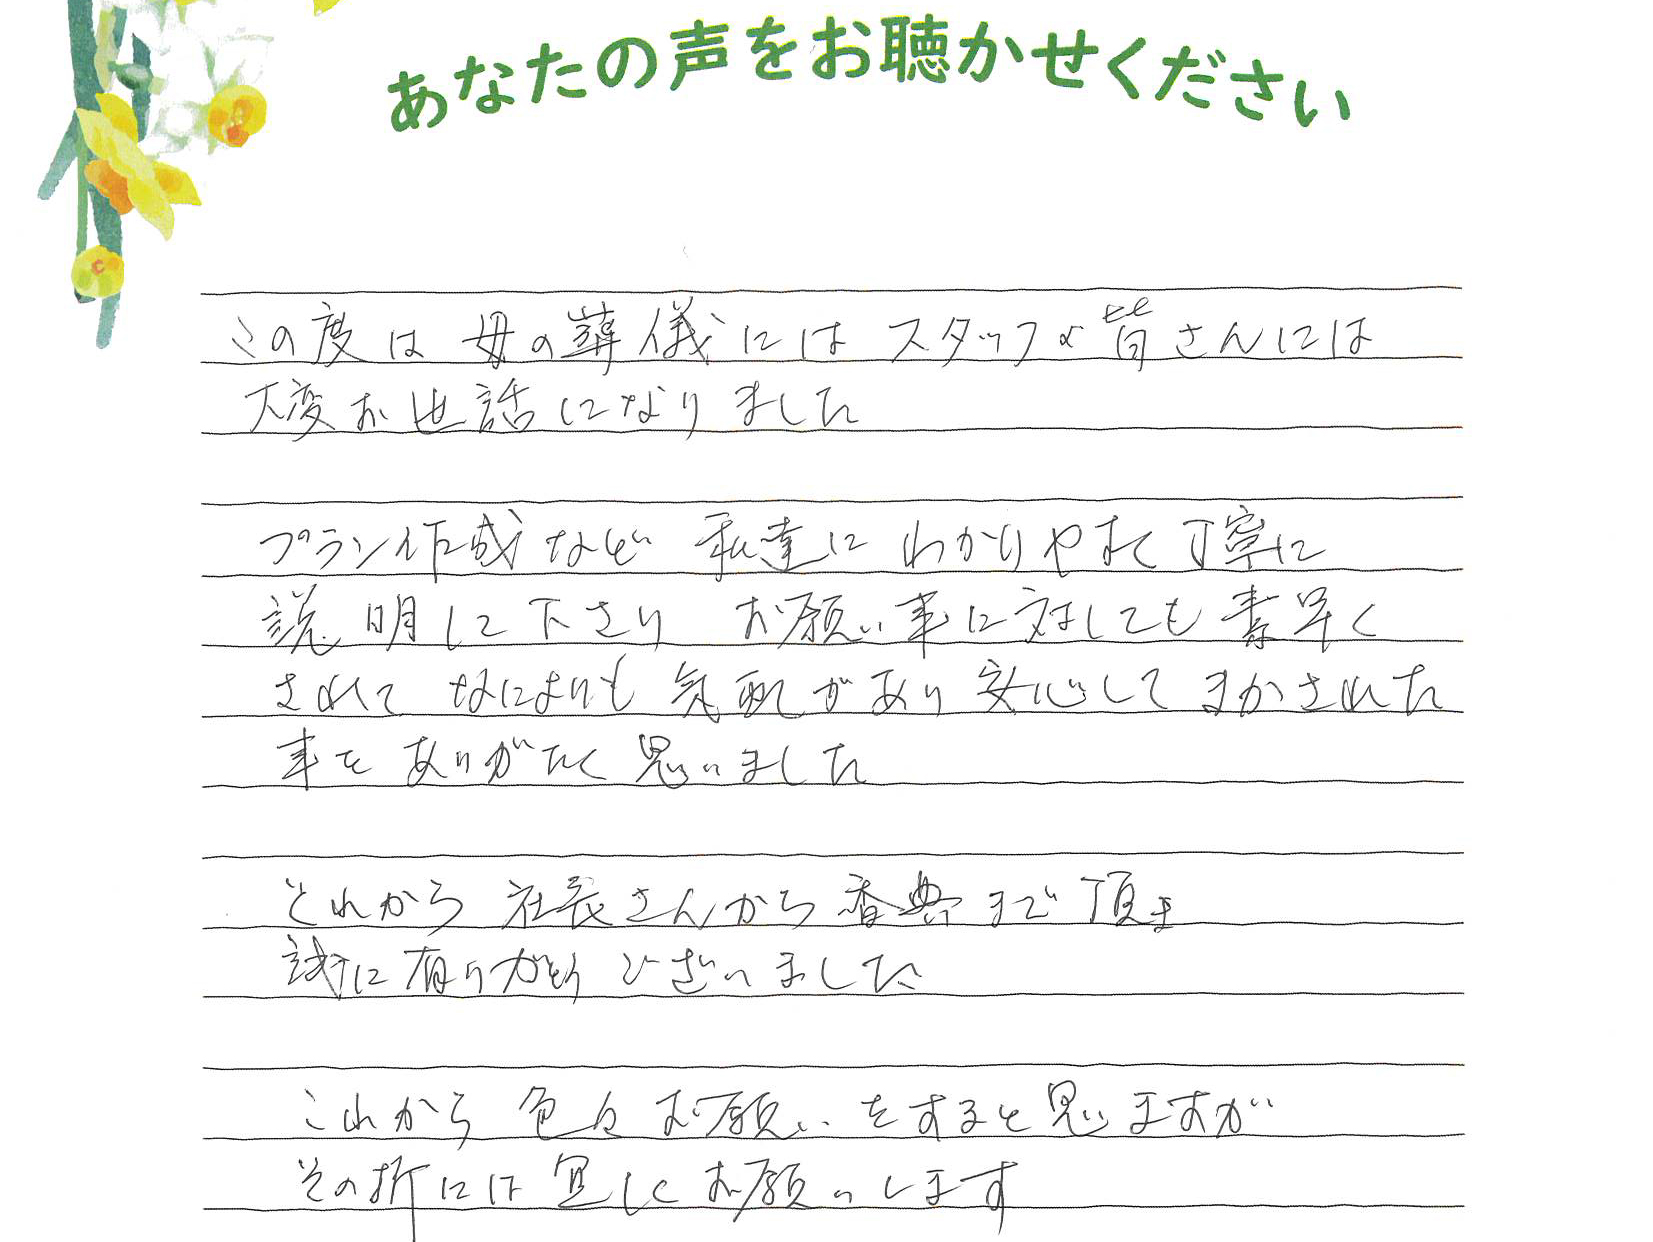 あなたの声をお聴かせください
この度は 母の葬儀には スタッフの皆さんには
大変お世話になりました
プラン作成など 私達に わかりやすく丁寧に
説明して下さり お願い事に対しても素早く
されて なによりも 気配があり 安心して まかされた
事を ありがたく思いました
それから 社長さんから香典まで頂き
誠に有りがとうございました
これから 色々お願いをすると思いますが
その折には宜しくお願いします